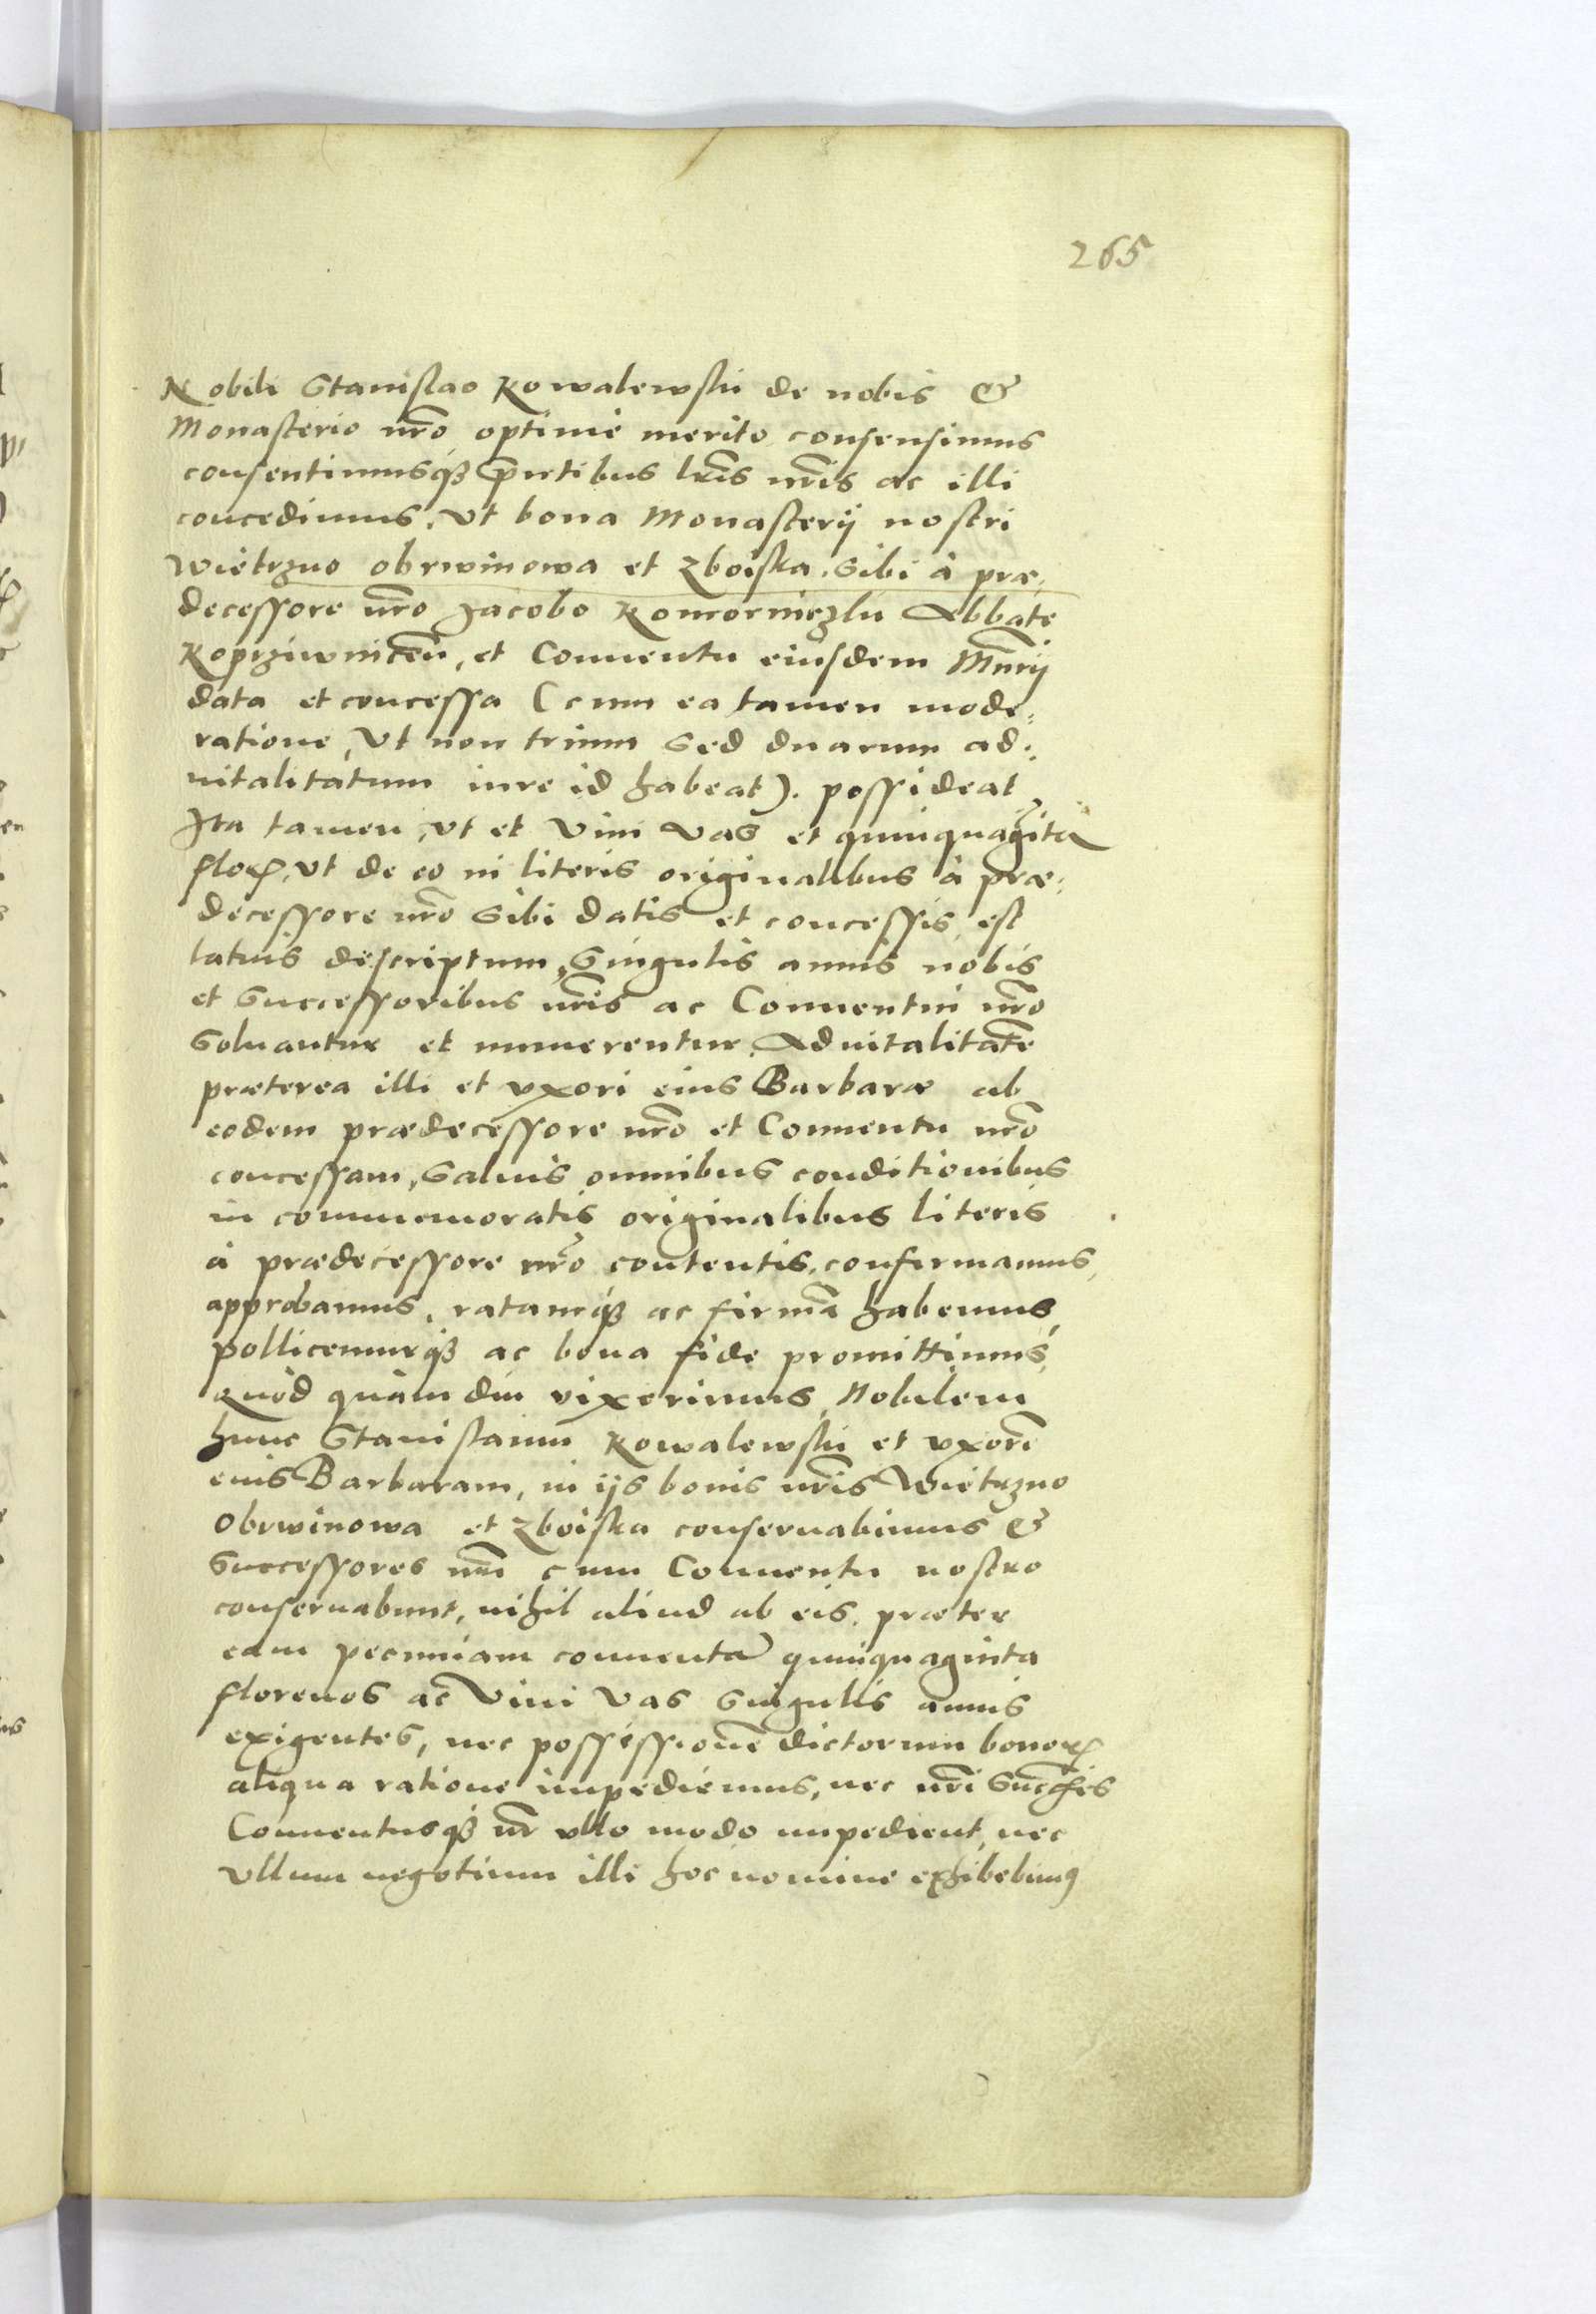 265
Nobili Stanislao Kowalewski de nobis &
Monasterio nr̃o optimè merito consensimus
consentimusq́ꝫ p̃ntibus lr̃is nr̃is ac illi
concedimus, Vt bona Monasterij nostri
Wietrzno Obrwinowa et Zboiska, sibi à præ-
decessore nr̃o Jacobo Komorniczki Abbate
Koprziwnicen̄, et Conuentu eiusdem Mn̄rij
data et concessa (cum ea tamen mode=
ratione, Vt non trium sed duarum ad=
uitalitátum iure id habeat). possideat
Ita tamen, vt et Vini vas et quinquagīta
floꝝ, vt de eo in literis originalibus à præ=
decessore nr̃o sibi datis et concessis est
latius descriptum, singulis annis nobis
et Successoribus nr̃is ac Conuentui nr̃o
soluantur et numerentur. Aduitalitatē
præterea illi et vxori eius Barbaræ ab
eodem prædecessore nr̃o et Conuentu nr̃o
concessam, saluis omnibus conditionibus
in commemoratis originalibus literis
à prædecessore nr̃o contentis, confirmamus,
approbamus, ratamq́ꝫ ac firmā habemus,
pollicemurq́ꝫ ac bona fide promittimus,
quòd quàm diu vixerimus, Nobilem
hunc Stanislaum Kowalewski et vxorē
eius Barbaram, in ijs bonis nr̃is Wietrzno
Obrwinowa et Zboiska conseruabimus &
Successores nr̃i cum Conuentu nostro
conseruabunt, nihil aliud ab eis, præter
eam pecuniam conuentā quinquaginta
florenos ac Vini vas singulis annis
exigentes, nec possessionē dictorum bonoꝝ
aliqua ratione impediemus, nec nr̃i Succ̃res
Conuentusq́ꝫ nr̃ vllo modo impedient, nec
vllum negotium illi hoc nomine exhibebimꝰ